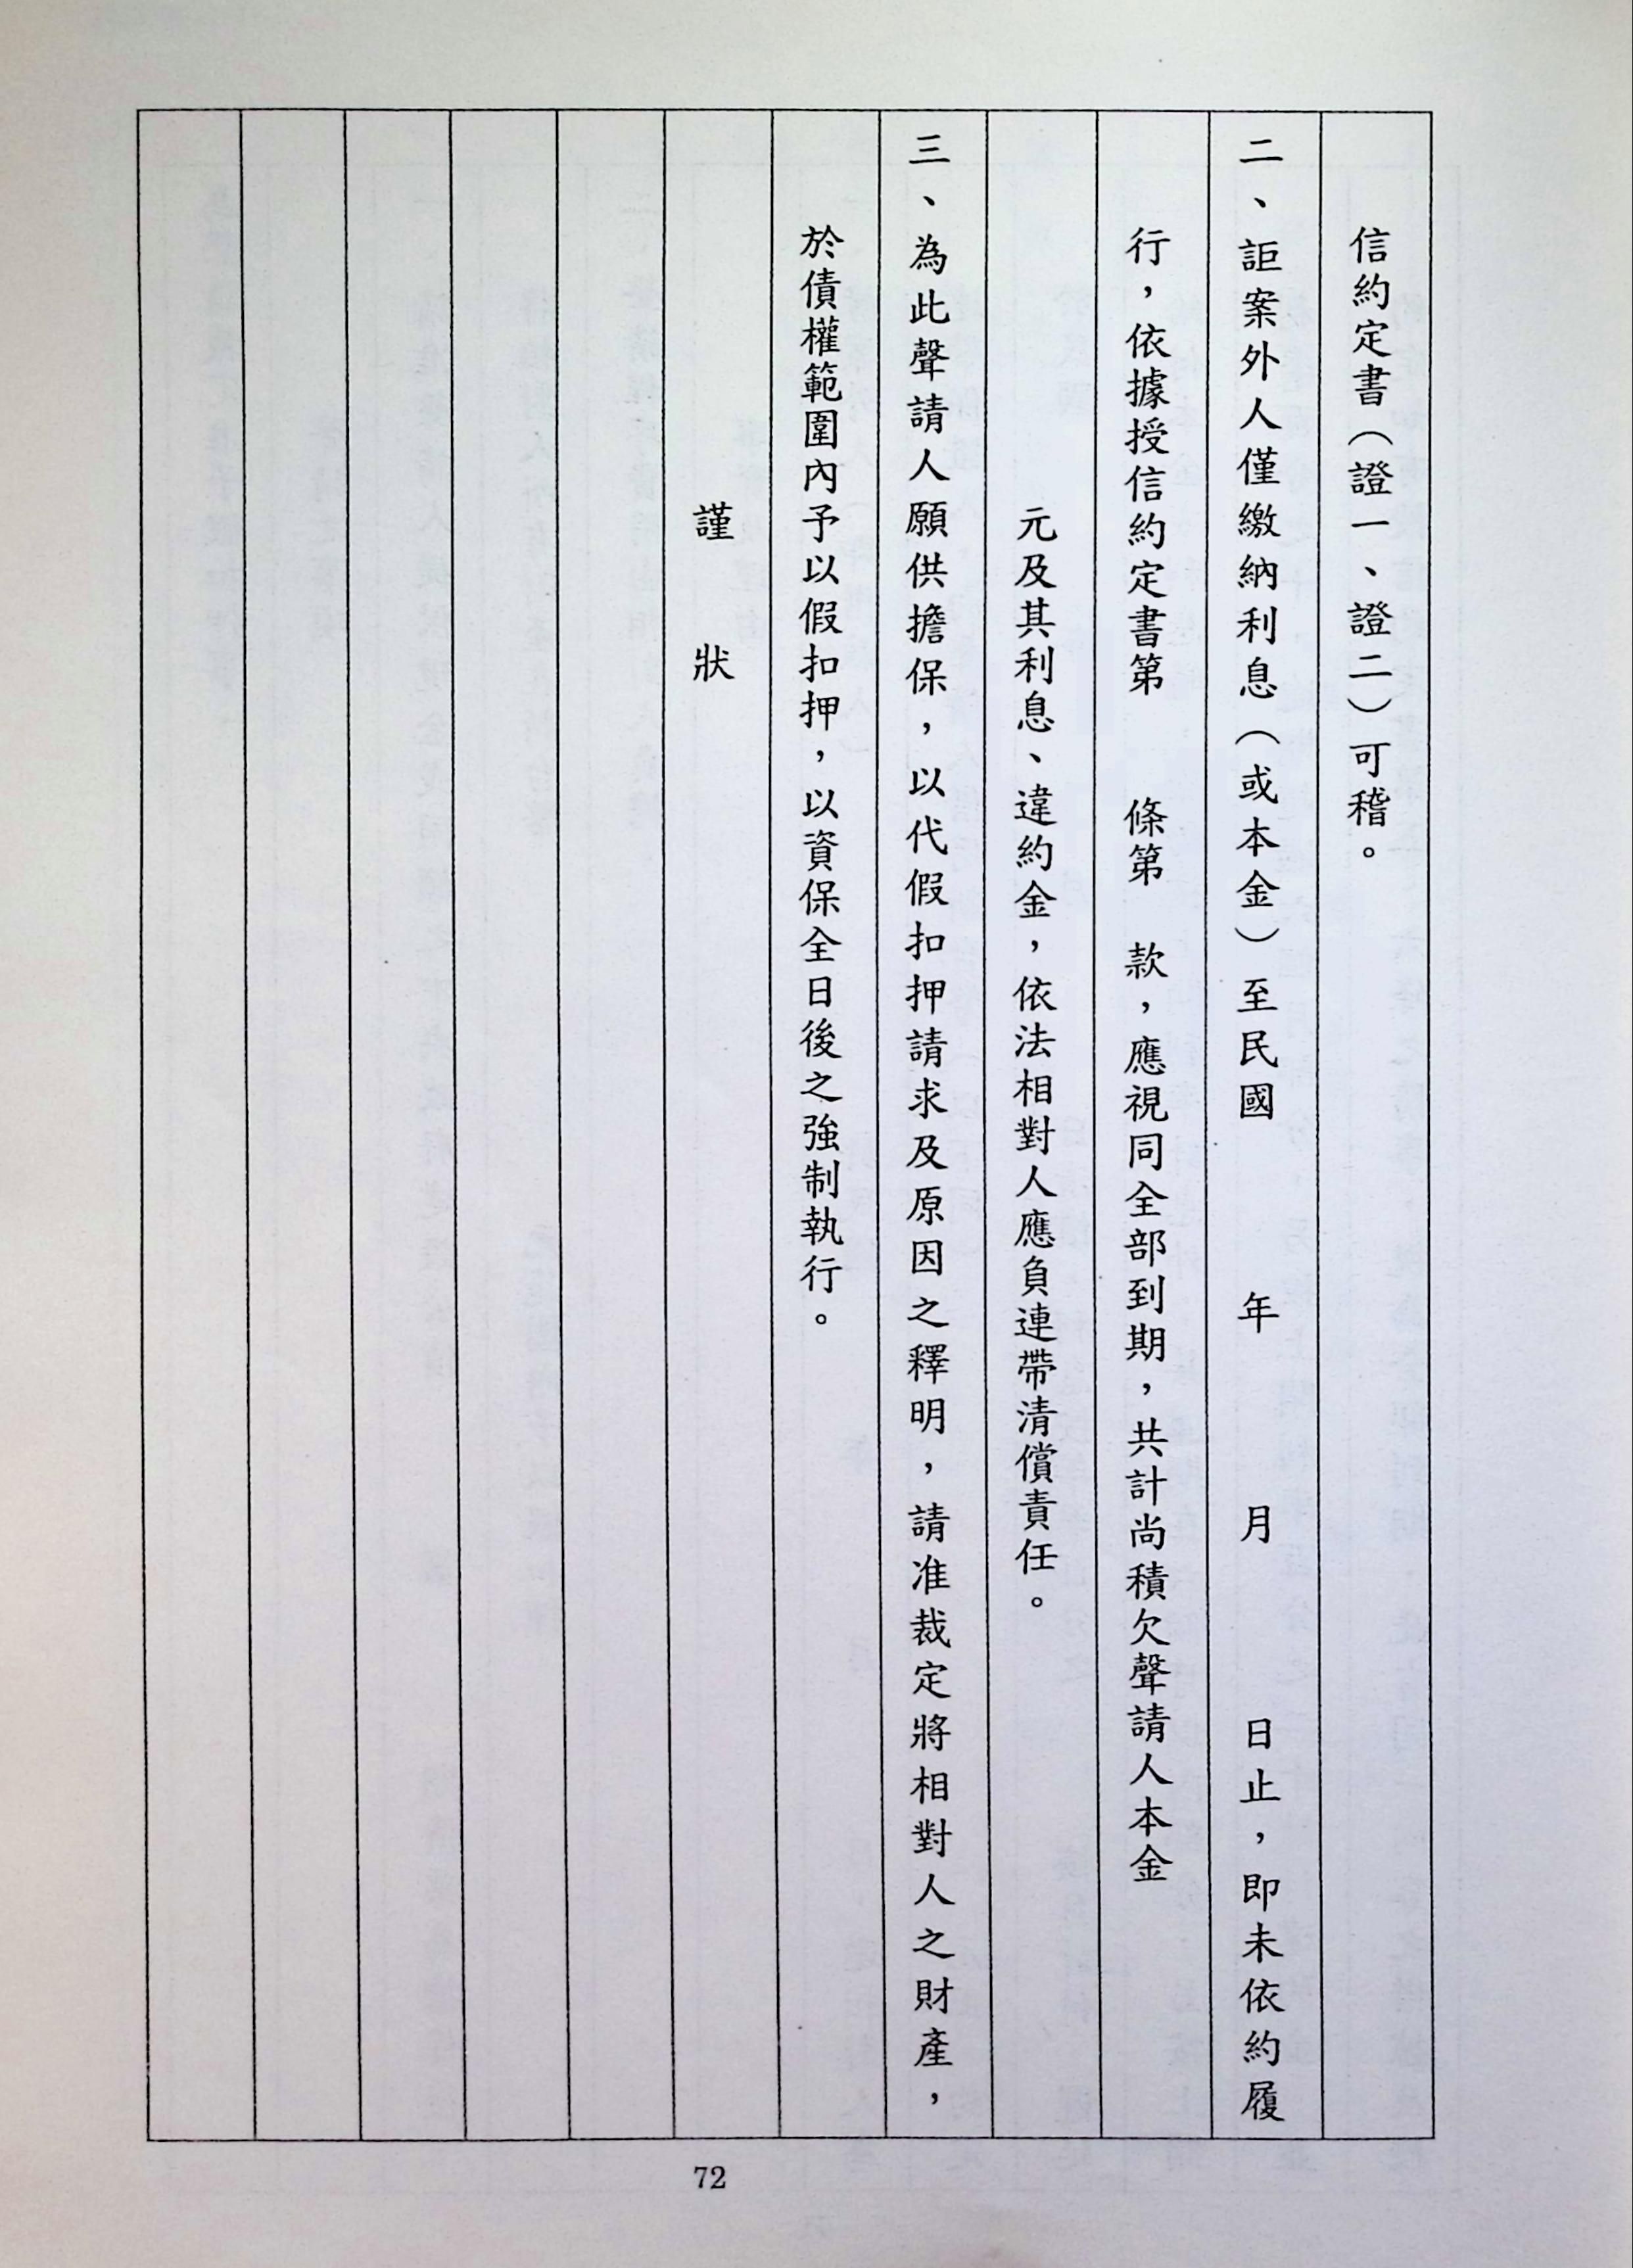 信約定書（證一、證二）可稽。
二、詎案外人僅繳納利息（或本金）至民國　　　年　　　月　　　日止，即未依約履
行，依據授信約定書第　　條第　款，應視同全部到期，共計尚積欠聲請人本金
元及其利息、違約金，依法相對人應負連帶清償責任。
三、為此聲請人願供擔保，以代假扣押請求及原因之釋明，請准裁定將相對人之財產，
於債權範圍內予以假扣押，以資保全日後之強制執行。
謹　　狀
72